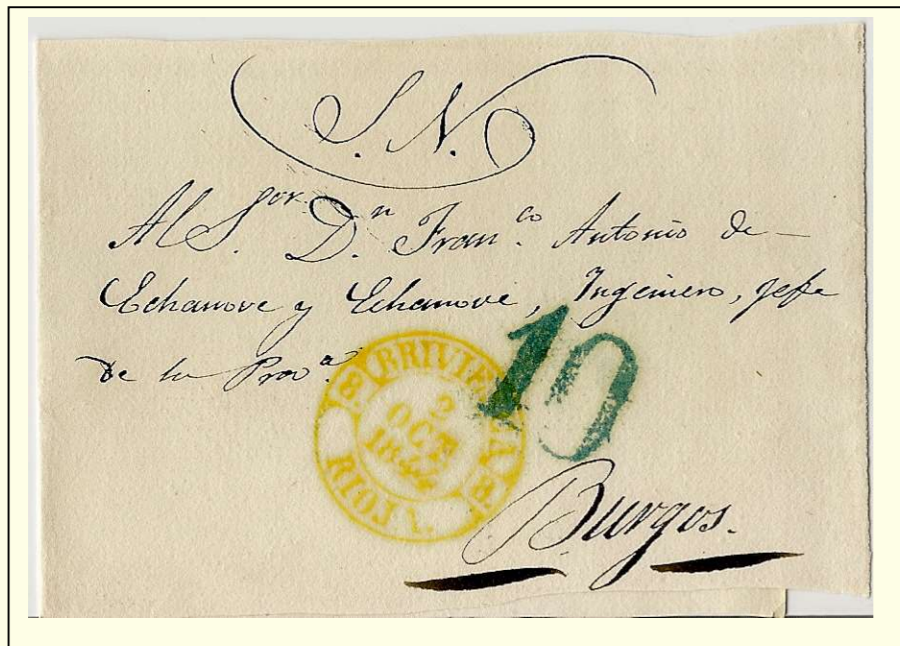 S. N.
Al S.or D.n Fran.co Antonio de
Echanove y Echanove, Ingeniero, Jefe
de la Prov.a
10
8. BRIVIESCA 8.
2
OCT
RIOJA.
Burgos.